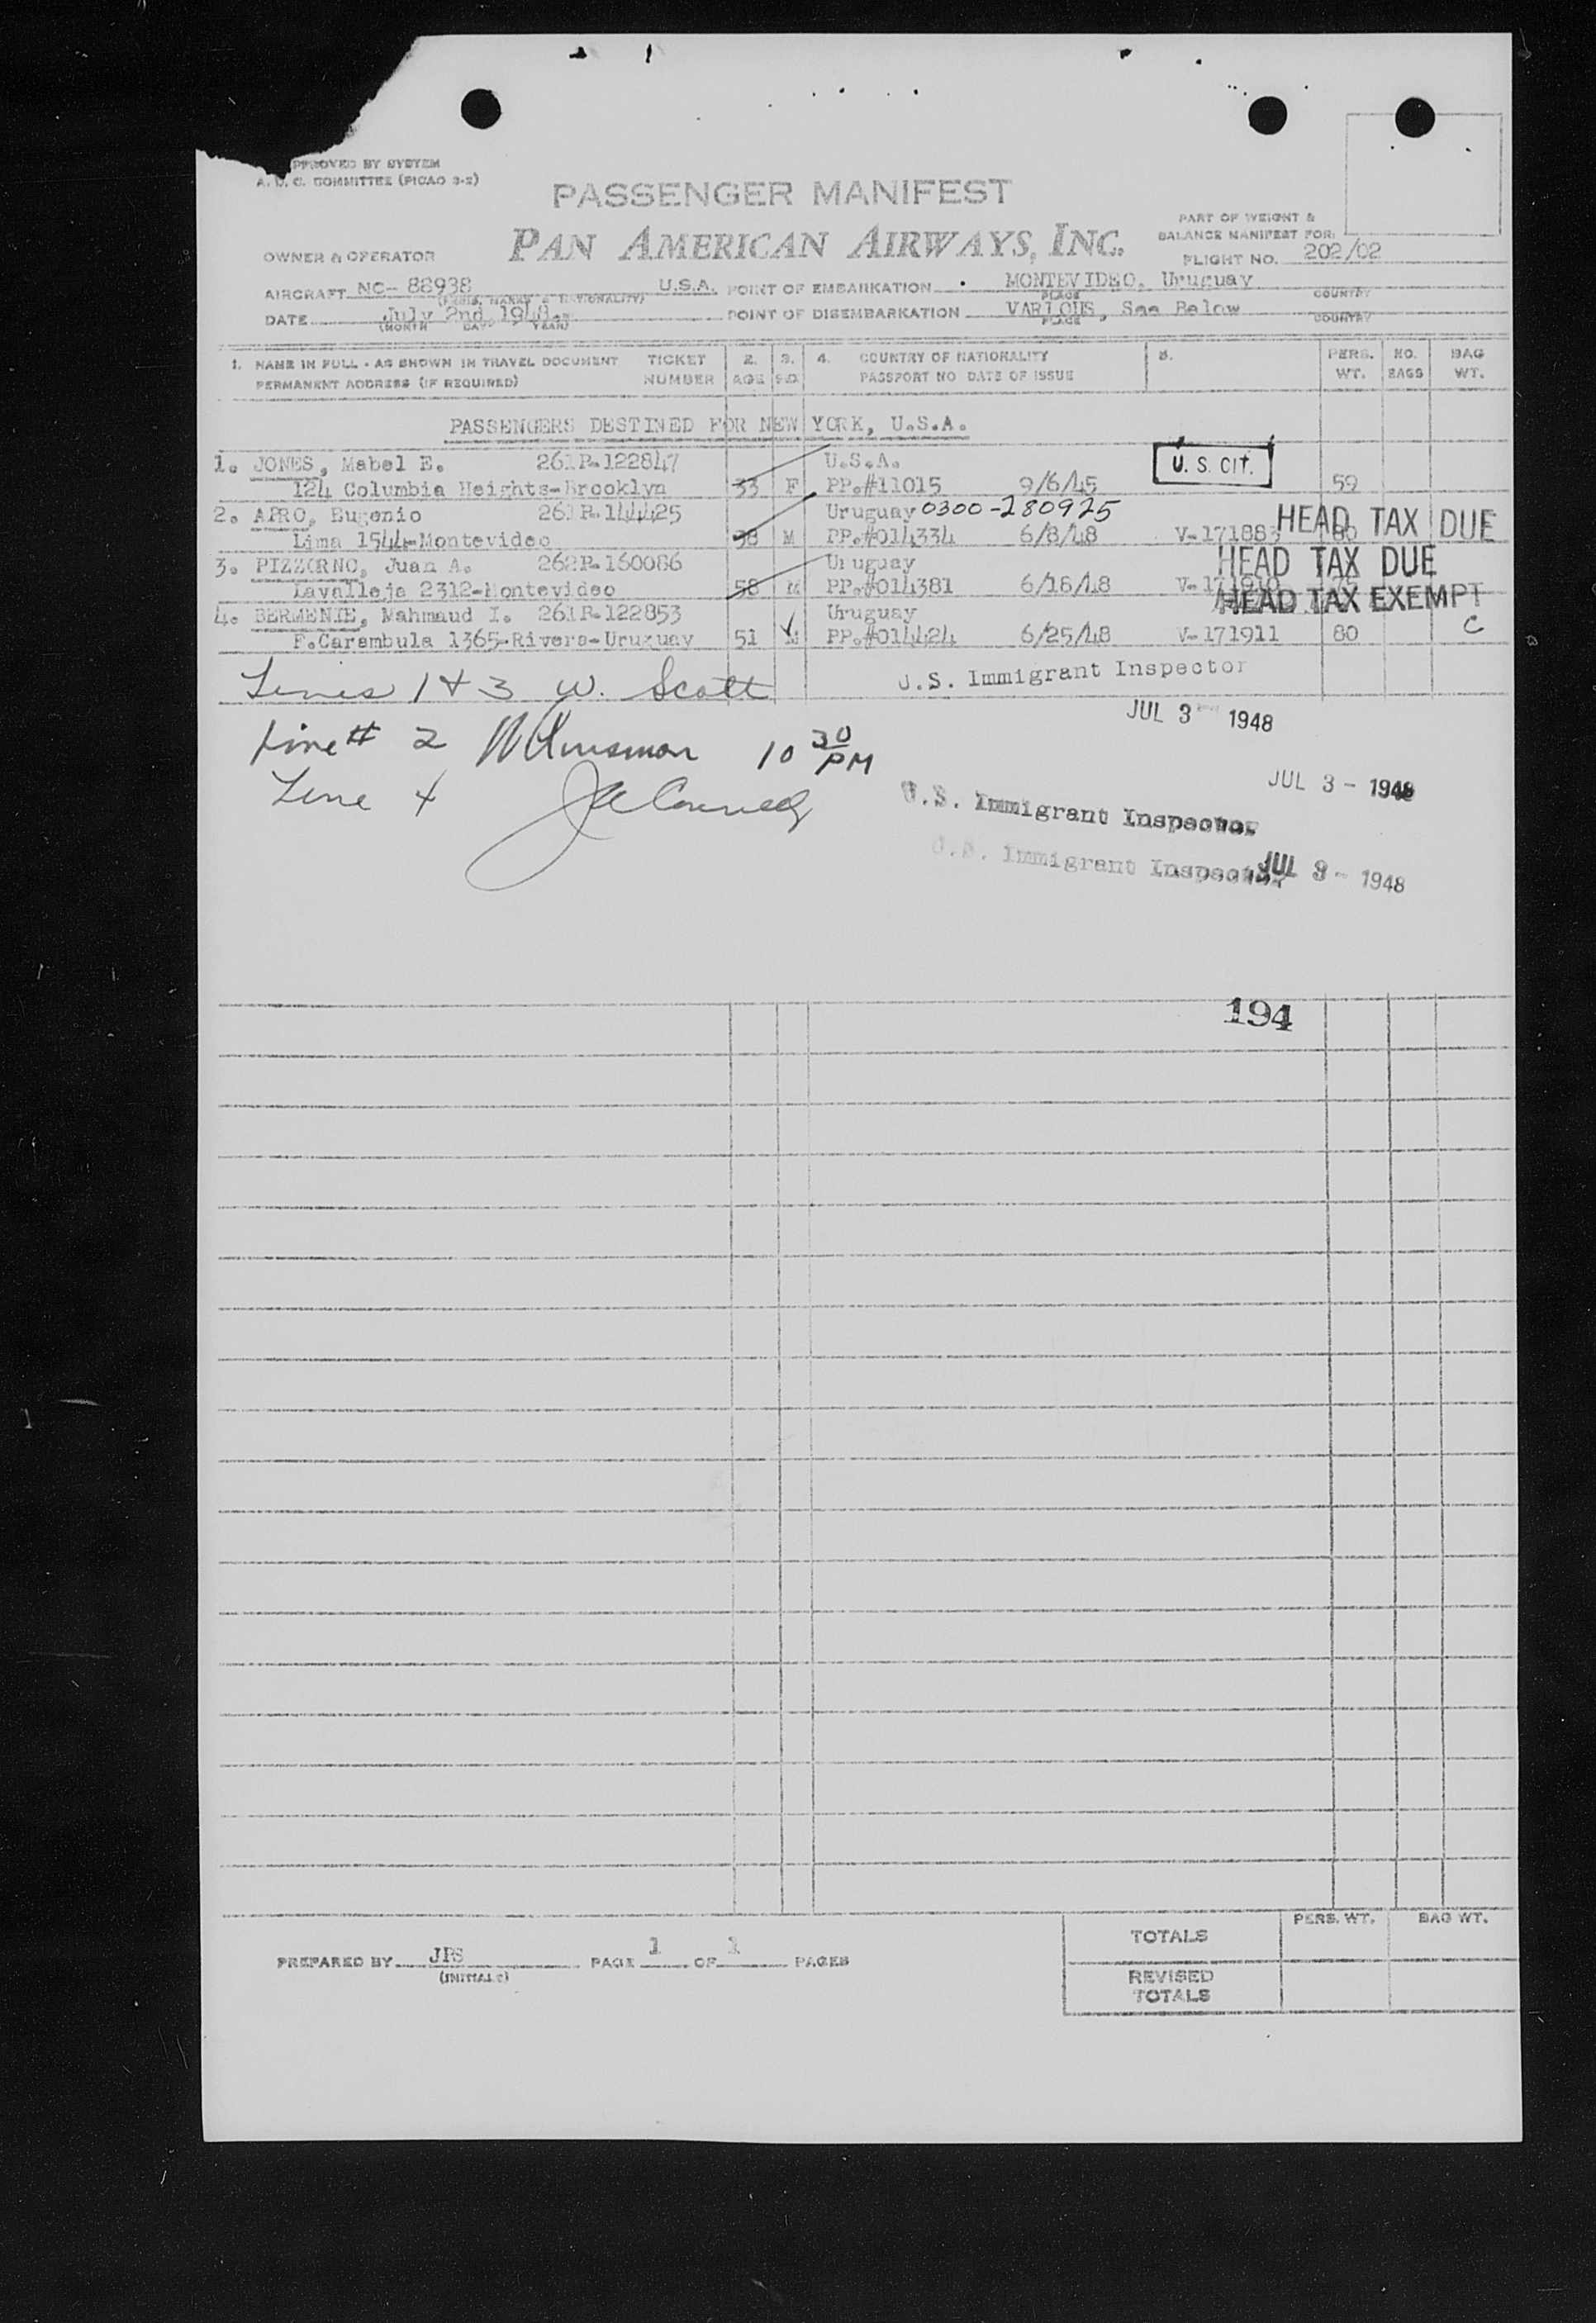 PPROVED BY SYSTEM
A. D. C. COMMITTEE (PICAO 3-2)
PASSENGER MANIFEST
PAN AMERICAN AIRWAYS, INC.
PART OF WEIGHT &
BALANCE MANIFEST FOR:
FLIGHT NO. 202/02
OWNER & OPERATOR
AIRCRAFT NC- 88938 U.S.A. POINT OF EMBARKATION MONTEVIDEO, Uruguay
PLACE COUNTRY
DATE July 2nd, 1948. POINT OF DISEMBARKATION VARIOUS, See Below
(MONTH DAY YEAR) PLACE COUNTRY
1. NAME IN FULL - AS SHOWN IN TRAVEL DOCUMENT TICKET 2. 3. 4. COUNTRY OF NATIONALITY 5. PERS. NO. BAG
PERMANENT ADDRESS (IF REQUIRED) NUMBER AGE PASSPORT NO DATE OF ISSUE WT. BAGS WT.
PASSENGERS DESTINED FOR NEW YORK, U.S.A.
1. JONES, Mabel E. 261R-122847 U.S.A. U. S. CIT.
124 Columbia Heights-Brooklyn 33 F PP.#11015 9/6/45 59
2. APRO, Eugenio 261R-144425 Uruguay 0300-280925 HEAD TAX DUE
Lima 1544-Montevideo 38 M PP.#014334 6/8/48 V-171883 80
3. PIZZORNO, Juan A. 262R-160086 Uruguay HEAD TAX DUE
Lavalleja 2312-Montevideo 58 M PP.#014381 6/16/48 V-171910
4. BERMENIE, Mahmaud I. 261R-122853 Uruguay HEAD TAX EXEMPT
F.Carambula 1365-Rivera-Uruguay 51 M PP.#014424 6/25/48 V-171911 80 C
Lines 1 & 3 W. Scott U.S. Immigrant Inspector
JUL 3 1948
Line # 2 10 30 PM
JUL 3 - 1948
Line 4
U.S. Immigrant Inspector
U.S. Immigrant Inspector JUL 3 - 1948
194
PERS. WT. BAG WT.
TOTALS
PREPARED BY JPS PAGE 1 OF 1 PAGES
(INITIALS)
REVISED
TOTALS